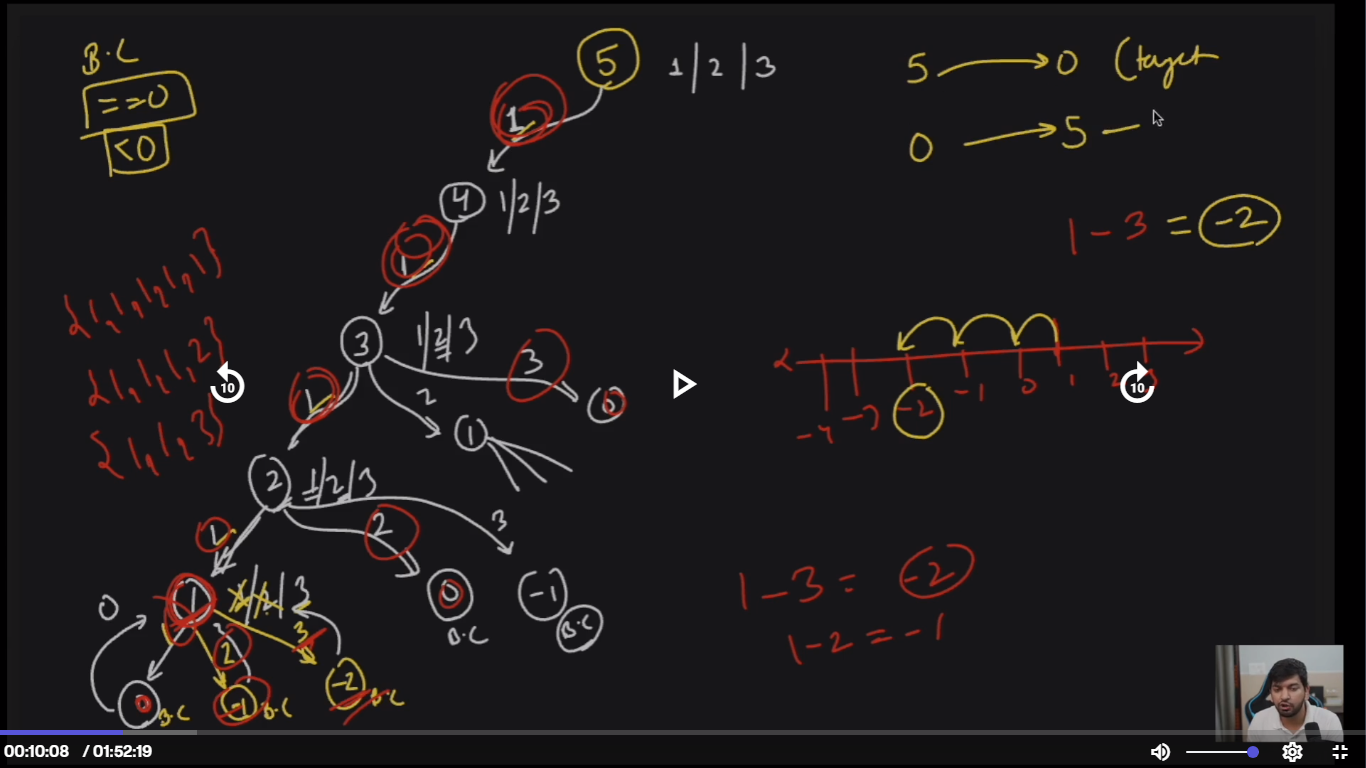 B.C
==0
<0
5 1/2/3
1
4 1/2/3
1
3 1/2/3
1 2 3
0
1
2 1/2/3
1 2 3
1 1/2/3
0
2 3
0 B.C
-1 B.C
-2 B.C
0 B.C
-1 B.C
{1,1,1,1,1}
{1,1,1,2}
{1,1,3}
5 → 0 (target
0 → 5 —
1-3 = -2
-4 -3 -2 -1 0 1 2 3
1-3 = -2
1-2 = -1
10
10
00:10:08 / 01:52:19